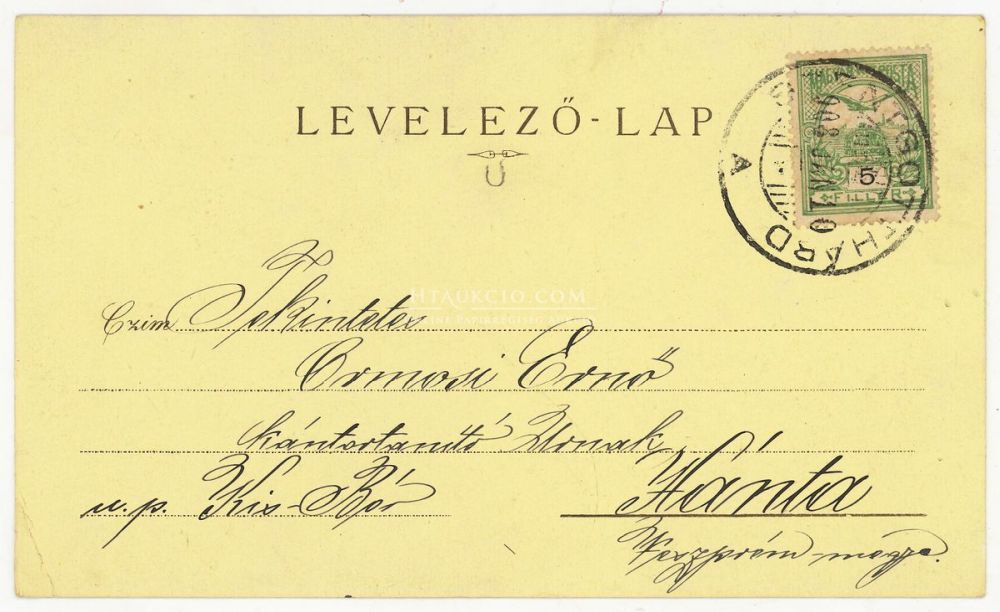 LEVELEZŐ-LAP
MAGYAR POSTA
5
FILLER
GOTTHÁRD
A
HTAUKCIO.COM
Czim Tekintetes
Ormosi Ernő
kántortanító Urnak
u. p. Kis-Bér Hánta
Veszprém megye.